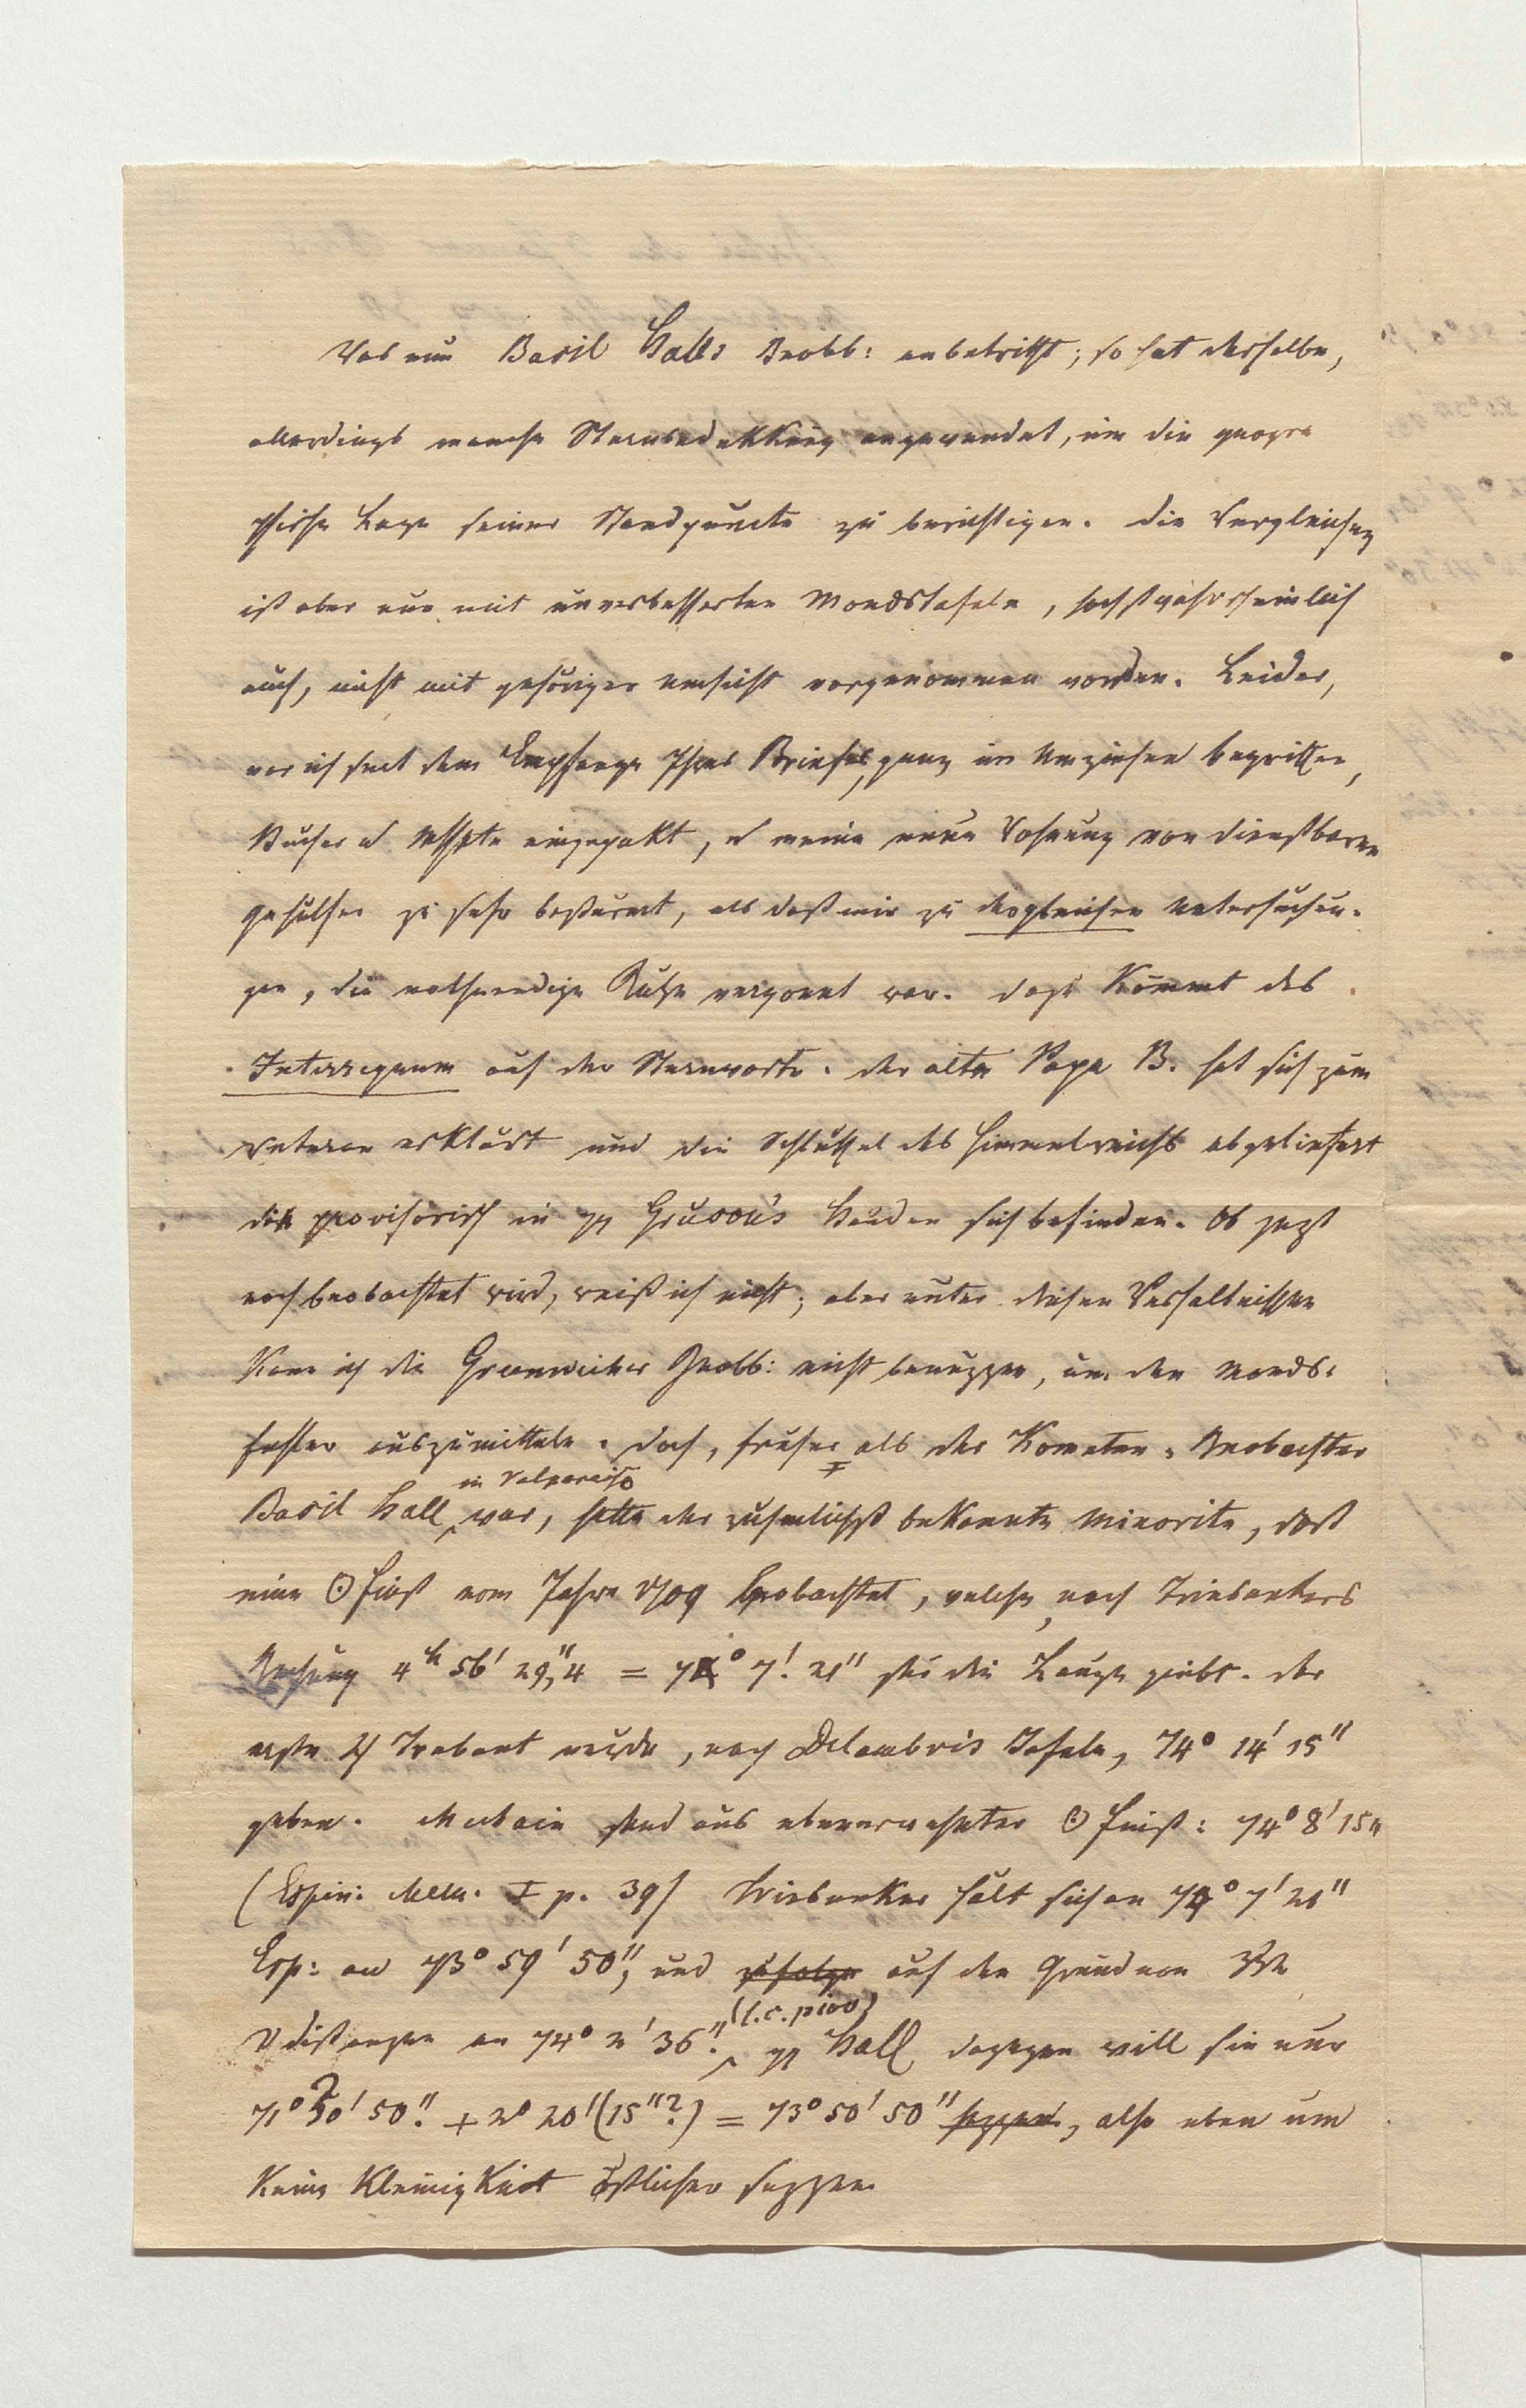 Was nun Basil Halls Beobb: anbetrifft; so hat derselbe,
allerdings manche Sternbedekkung angewendet, um die geogra
phische Lage seiner Standpuncte zu berichtigen. Die Vergleichung
ist aber nur mit unverbesserten Mondstafeln, höchstwahrscheinlich
auch, nicht mit gehöriger Umsicht vorgenommen worden. Leider,
war ich seit dem Empfange Ihres Briefes, ganz im Umziehen begriffen,
Bücher u Msspte eingepakt, u meine neue Wohnung von dienstbaren
Gehülfen zu sehr bestürmt, als daß mir zu dergleichen Untersuchun-
gen, die nothwendige Ruhe vergönnt war. Dazu Kömmt das
Interregnum auf der Sternwarte. Der alte Papa B. hat sich zum
Veteran erklärt und die Schlüssel des Himmelreichs abgeliefert
die provisorisch in H Gruson's Händen sich befinden. Ob jezt
noch beobachtet wird, weiß ich nicht; aber unter diesen Verhältnissen
Kann ich die Greenwicher Beobb: nicht benuzzen, um den Monds-
fehler auszumitteln. Doch, früher als der Kometen-Beobachter
Basil Hall in Valparaiso war, hatte der rühmlichst bekannte Minorite, dort
eine ☉ Finst vom Jahre 1709 beobachtet, welche, nach Triesnekers
Rechnung 4h 56′ 29″,4 = 74° 7′. 21″ für die Länge giebt. Der
erste ♃ Trabant würde, nach Delambre's Tafeln, 74° 14′ 15″
geben. Mechain fand aus ebenerwehnter ☉ Finst: 74° 8′ 15″
(Espin: Mem. I p. 39) Triesneker hält sich an 74° 7′ 21″
Esp: an 73° 59′ 50″, und zufolge auf den Grund von
☽distanzen an 74° 2′ 36″. (l.c. p 100) H Hall dagegen will sie nur
71° 30′ 50″. + 2° 20′ (15″?) = 73° 50′ 50″ sezzen, also eben um
Keine KleinigKeit östlicher sezzen.